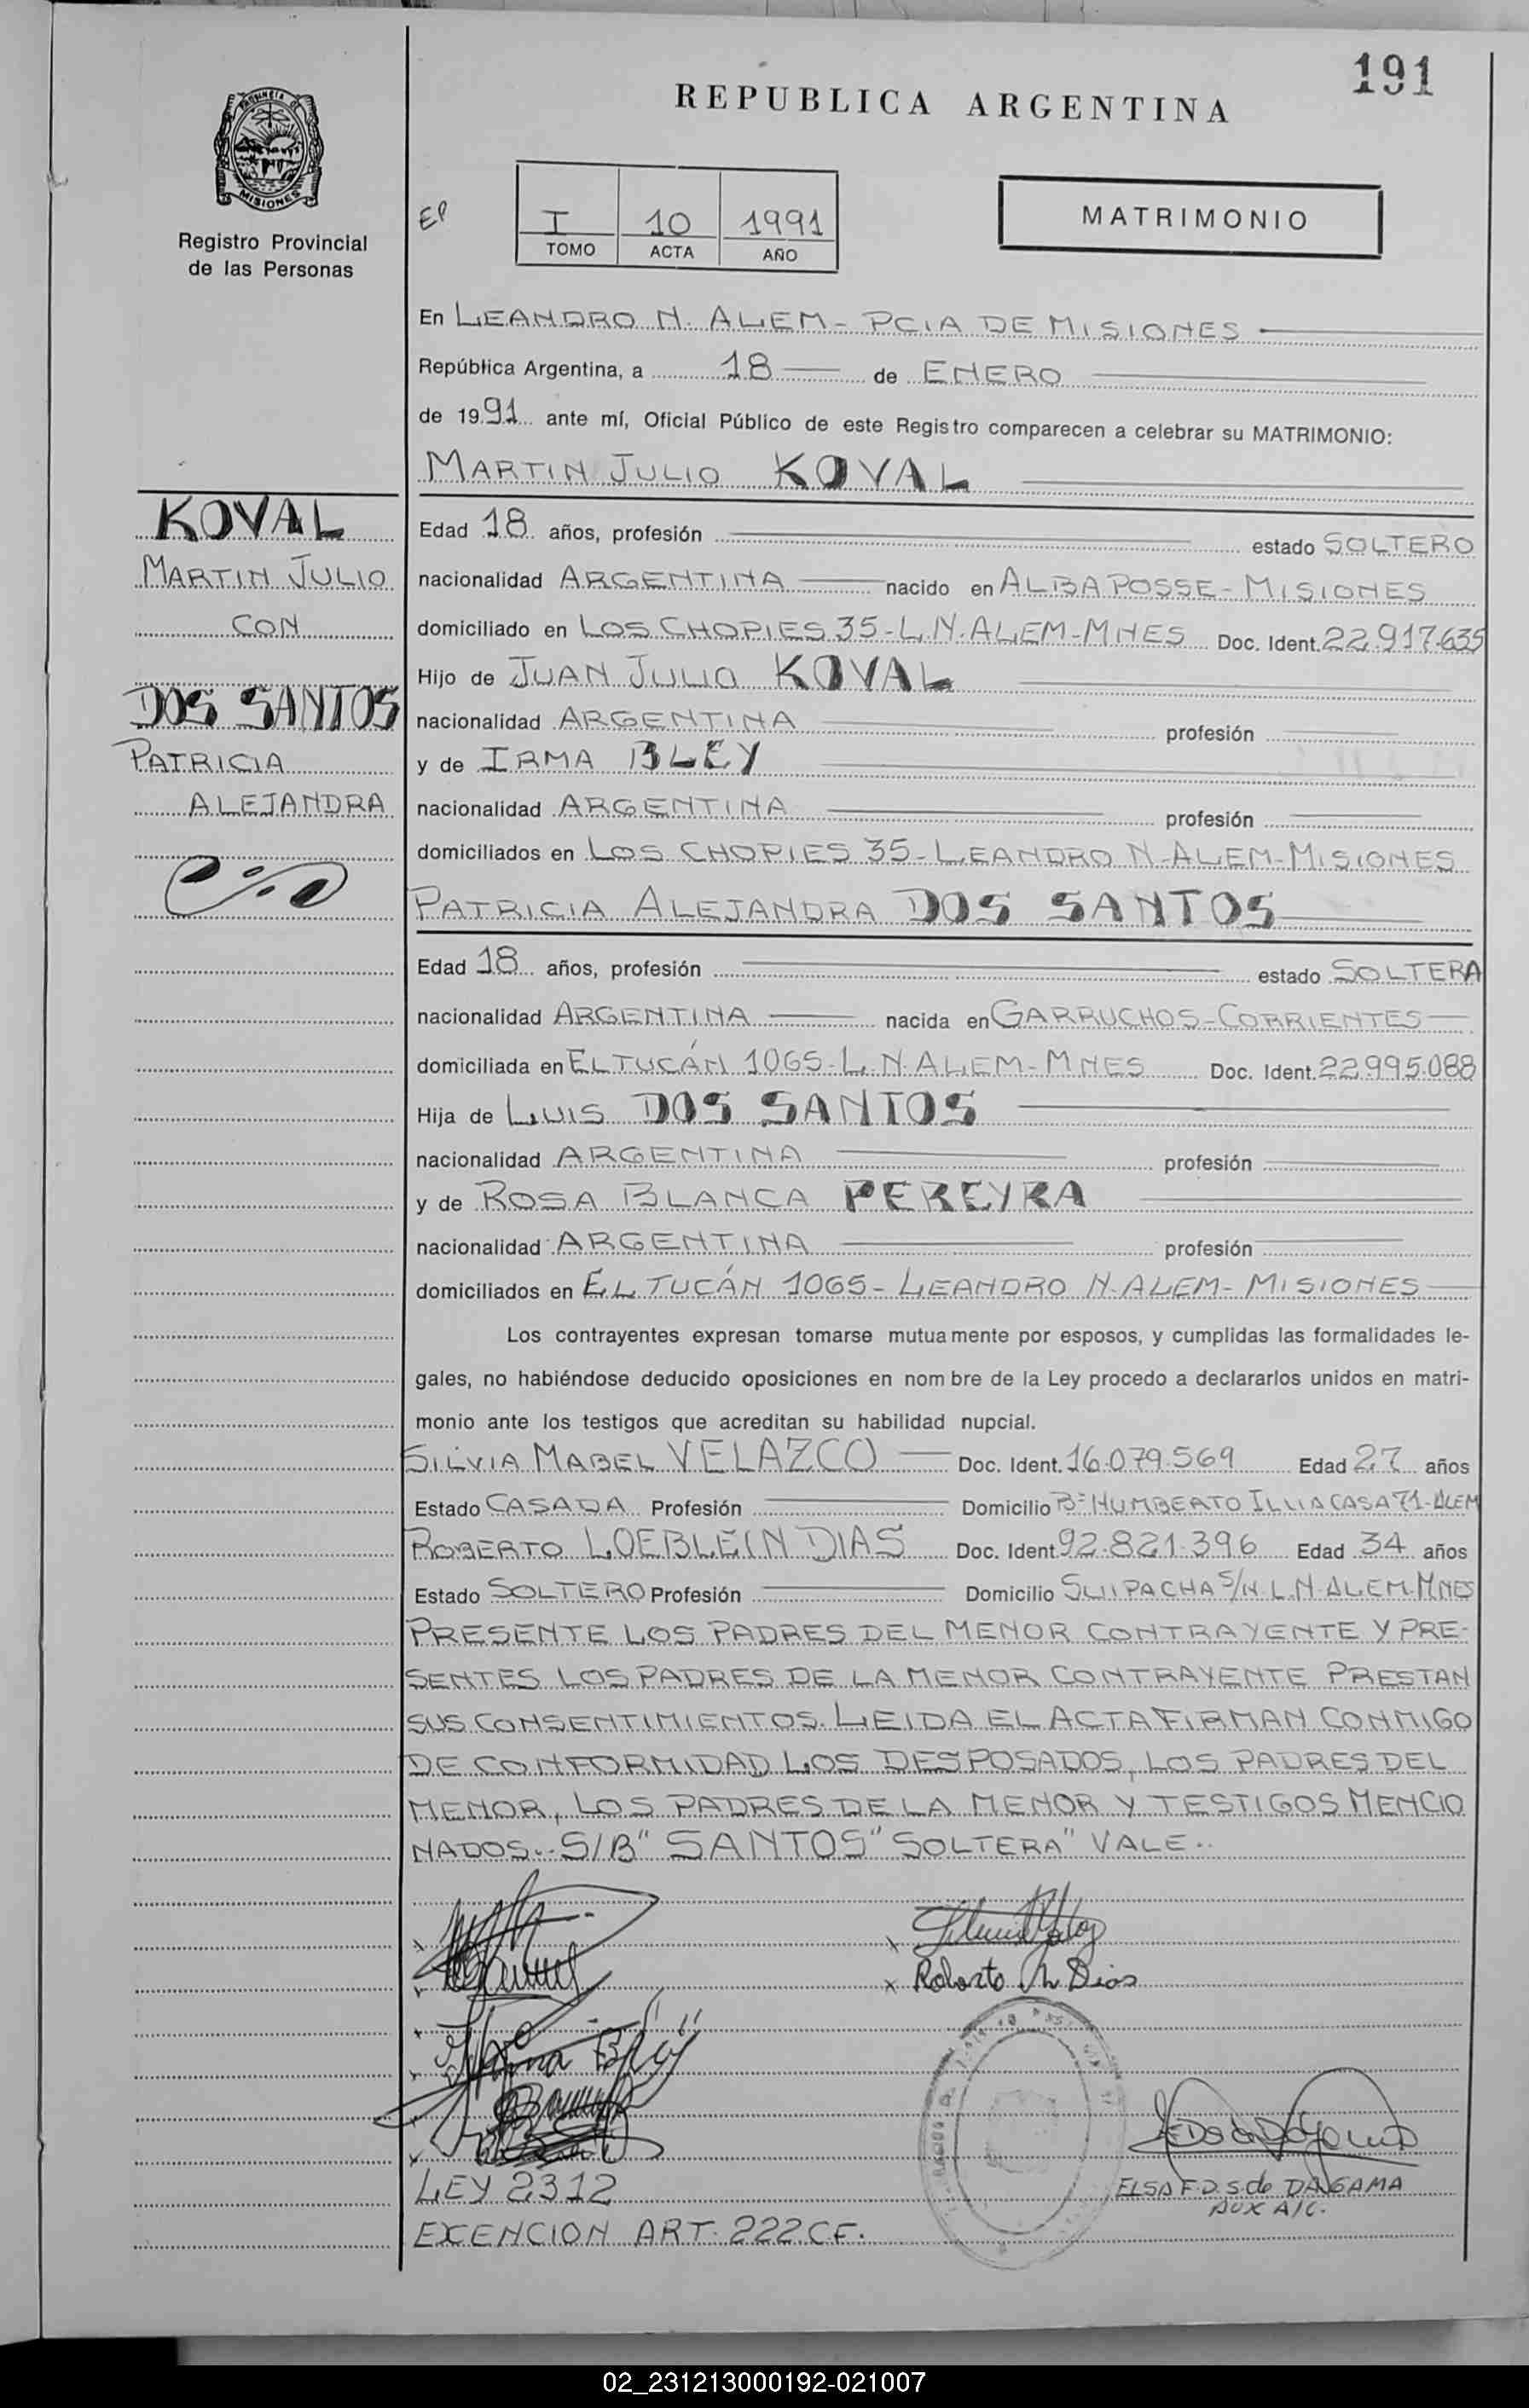 191
REPUBLICA ARGENTINA
PROVINCIA DE
MISIONES
Registro Provincial
de las Personas
EP
I 10 1991
TOMO ACTA AÑO
MATRIMONIO
En LEANDRO N. ALEM - PCIA DE MISIONES
República Argentina, a 18 de ENERO
de 1991 ante mí, Oficial Público de este Registro comparecen a celebrar su MATRIMONIO:
MARTIN JULIO KOVAL
KOVAL
MARTIN JULIO
CON
DOS SANTOS
PATRICIA
ALEJANDRA
Edad 18 años, profesión estado SOLTERO
nacionalidad ARGENTINA nacido en ALBA POSSE - MISIONES
domiciliado en LOS CHOPIES 35 - L.N. ALEM - MNES Doc. Ident. 22.917.635
Hijo de JUAN JULIO KOVAL
nacionalidad ARGENTINA profesión
y de IRMA BLEY
nacionalidad ARGENTINA profesión
domiciliados en LOS CHOPIES 35 - LEANDRO N. ALEM - MISIONES
PATRICIA ALEJANDRA DOS SANTOS
Edad 18 años, profesión estado SOLTERA
nacionalidad ARGENTINA nacida en GARRUCHOS - CORRIENTES
domiciliada en EL TUCÁN 1065 - L.N. ALEM - MNES Doc. Ident. 22.995.088
Hija de LUIS DOS SANTOS
nacionalidad ARGENTINA profesión
y de ROSA BLANCA PEREYRA
nacionalidad ARGENTINA profesión
domiciliados en EL TUCÁN 1065 - LEANDRO N. ALEM - MISIONES
Los contrayentes expresan tomarse mutuamente por esposos, y cumplidas las formalidades le-
gales, no habiéndose deducido oposiciones en nombre de la Ley procedo a declararlos unidos en matri-
monio ante los testigos que acreditan su habilidad nupcial.
SILVIA MABEL VELAZCO Doc. Ident. 16.079.569 Edad 27 años
Estado CASADA Profesión Domicilio Bº HUMBERTO ILLIA CASA 71 - ALEM
ROBERTO LOEBLEIN DIAS Doc. Ident. 92.821.396 Edad 34 años
Estado SOLTERO Profesión Domicilio SUIPACHA S/N. L.N. ALEM. MNES
PRESENTE LOS PADRES DEL MENOR CONTRAYENTE Y PRE-
SENTES LOS PADRES DE LA MENOR CONTRAYENTE PRESTAN
SUS CONSENTIMIENTOS. LEIDA EL ACTA FIRMAN CONMIGO
DE CONFORMIDAD LOS DESPOSADOS, LOS PADRES DEL
MENOR, LOS PADRES DE LA MENOR Y TESTIGOS MENCIO
NADOS.. S/B "SANTOS" "SOLTERA" VALE..
Roberto L Dias
Irma Bley
LEY 2312
EXENCION ART. 222 C.F.
ELSA F.D.S. de DA GAMA
AUX A/C.
02_231213000192-021007